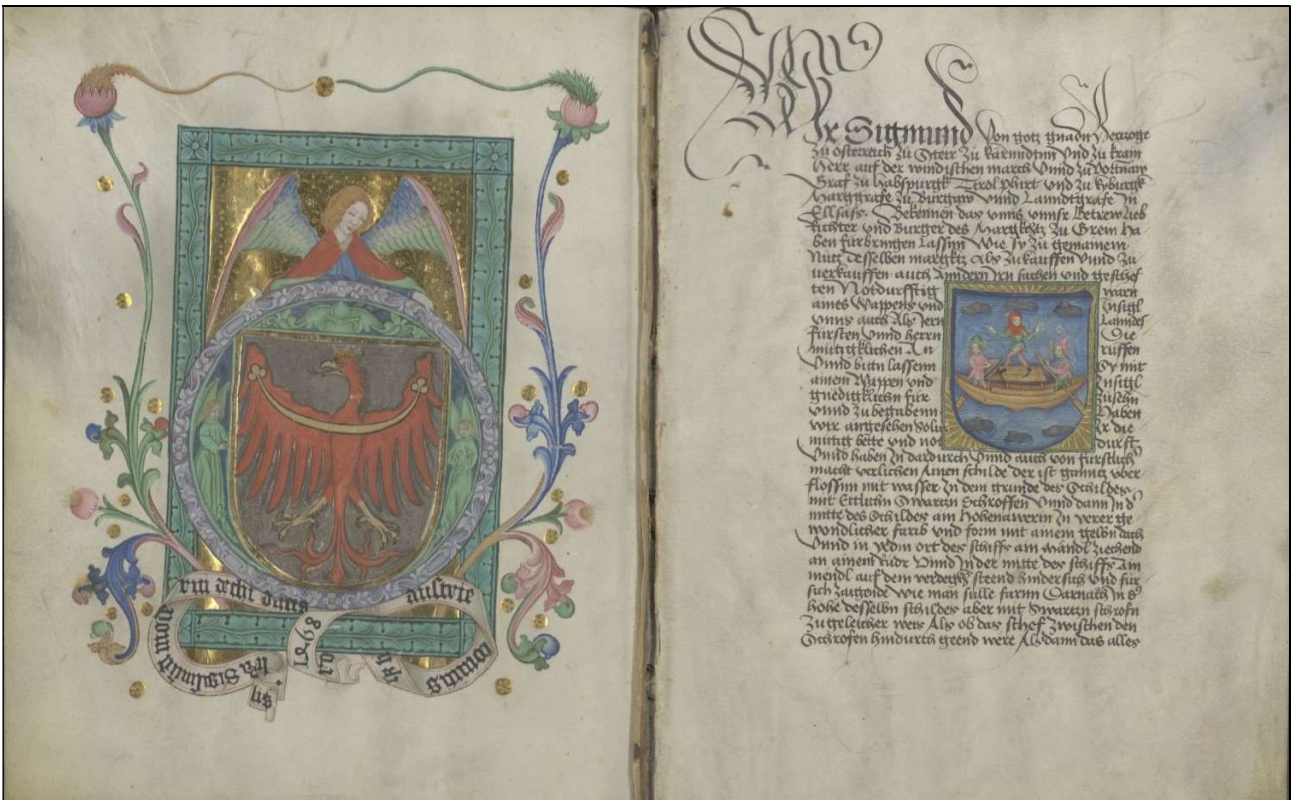 rin archi ducis austrie
Wir Sigmund von gotz gnadn Hertzoge
zu Osterreich zu Steir zu karnndtnn vnd zu krain
Herr auf der windischen march vnnd zu Porttnaw
Graf zu Habspurgk Tirol phirt vnd zu kyburgk
Marggrafe zu Burgaw vnnd Lanndtgrafe in
Ellsass. Bekennen das vnns vnnser getrew lieb
Richter vnd Burger des Margkhtz zu Grein ha
ben furbringen lassnn Wie Sy zu gemainem
Nutz desselben margktz Als zukauffen vnnd zu
uerkauffen auch anndern irn sachen vnd geschef
ten Notdurfftig warn
aines Wappens vnd Insigl
vnns auch Als Iern Lanndes
fursten vnnd herrn Die
mutigklichen An ruffen
vnnd bitn lassenn Sy mit
ainem Wappen vnd Insigl
gnedigklichn fur zusehn
vnnd zu begabenn Haben
wir angesehen solich Ir die
mutig bette vnd not durfft
vnnd haben In dardurch vnnd auch von furstlich
macht verlichen Ainen schilde der ist ganntz vber
flossnn mit wasser In dem grunde des Schildes
mit Ettlichn Swartzn Schroffen vnnd dann In d
mitte des Schildes ain Hohenawerin In irer ge
wondlicher farib vnd form mit ainem gelbn dach
vnnd in yedm ort des schiffs ain mandl ziechend
an ainem Rudr vnnd In der mitte des schiffs Ain
mendl auf dem verdegkh steend hindersich vnd fur
sich zaigende wie man sulle farnn Darnach in d
hohe desselbn schildes aber mit Swartzn schrofn
zu geleicher weis Als ob das schef zwischen den
Schrofen hindurch geend were Als dann das alles